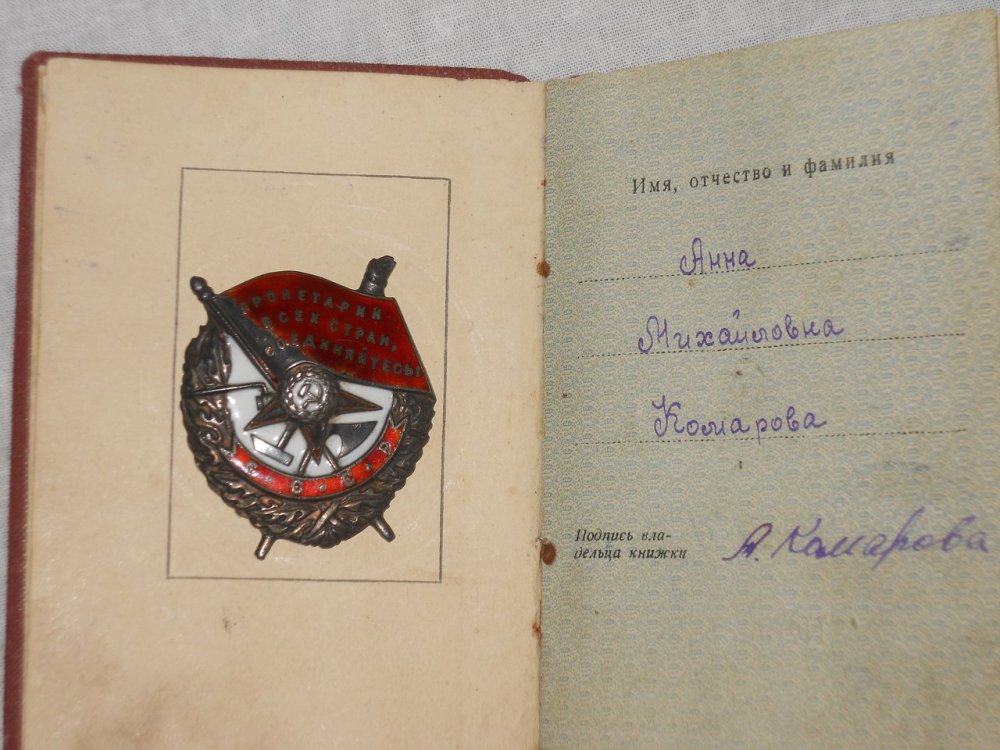 ПРОЛЕТАРИИ
ВСЕХ СТРАН,
СОЕДИНЯЙТЕСЬ!
Имя, отчество и фамилия
Анна
Михайловна
Комарова
Подпись вла-
дельца книжки
А. Комарова